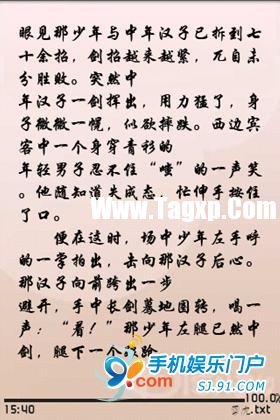 眼见那少年与中年汉子已拆到七
十余招，剑招越来越紧，兀自未
分胜败。突然中
年汉子一剑挥出，用力猛了，身
子微微一幌，似欲摔跌。西边宾
客中一个身穿青衫的
年轻男子忍不住“嗤”的一声笑
。他随知道失成态，忙伸手按住
了口。
www.Tagxp.com
便在这时，场中少年左手呼
的一掌拍出，击向那汉子后心。
那汉子向前跨出一步
避开，手中长剑蓦地圈转，喝一
声：“着！”那少年左腿已然中
剑，腿下一个
手机娱乐门户
SJ.91.COM
15:40
100.0
.txt